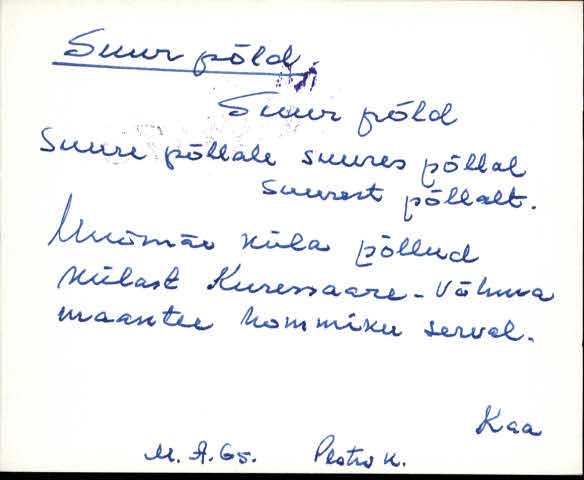 Suur põld
Suur põld
Suure põllale suures põllal
suurest põllalt.
küla põllud
külast Kuressaare - Võhma
maantee hommiku serval.
Kaa
M. A. 65.